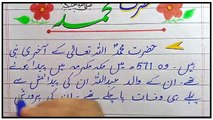 حضرت محمد ﷺ
حضرت محمدؐ اللہ تعالیٰ کے آخری نبی
ہیں۔ وہ 571ء میں مکہ مکرمہ میں پیدا ہوئے
تھے۔ ان کے والد عبداللہ ان کی پیدائش سے
پہلے ہی وفات پا چکے تھے۔ ان کی پرورش